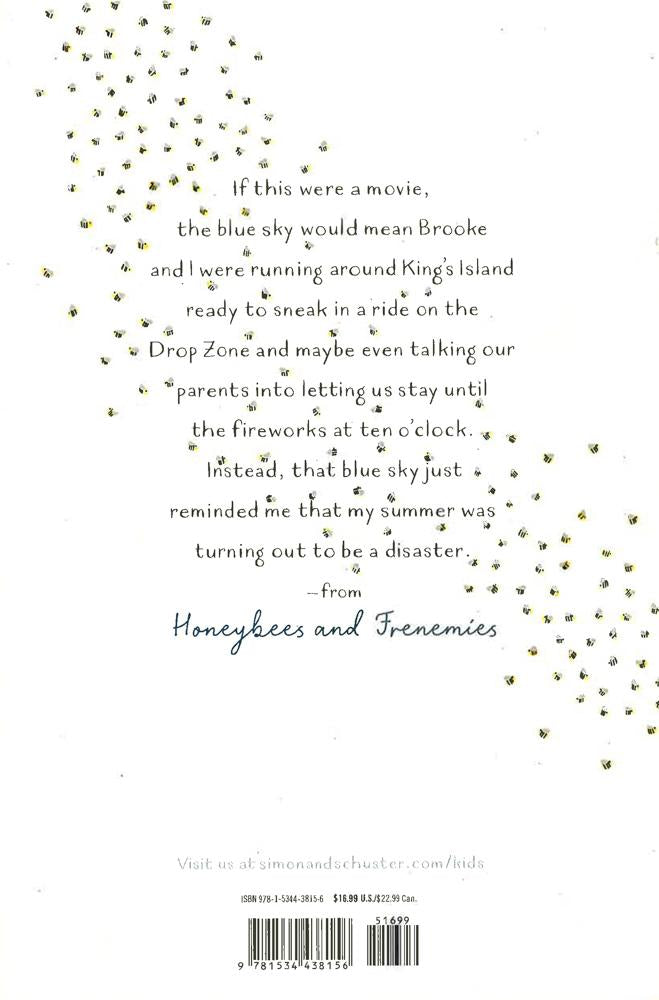 If this were a movie,
the blue sky would mean Brooke
and I were running around King's Island
ready to sneak in a ride on the
Drop Zone and maybe even talking our
parents into letting us stay until
the fireworks at ten o'clock.
Instead, that blue sky just
reminded me that my summer was
turning out to be a disaster.
—from
Honeybees and Frenemies
Visit us at simonandschuster.com/kids
ISBN 978-1-5344-3815-6 $16.99 U.S./$22.99 Can.
51699
9 781534 438156